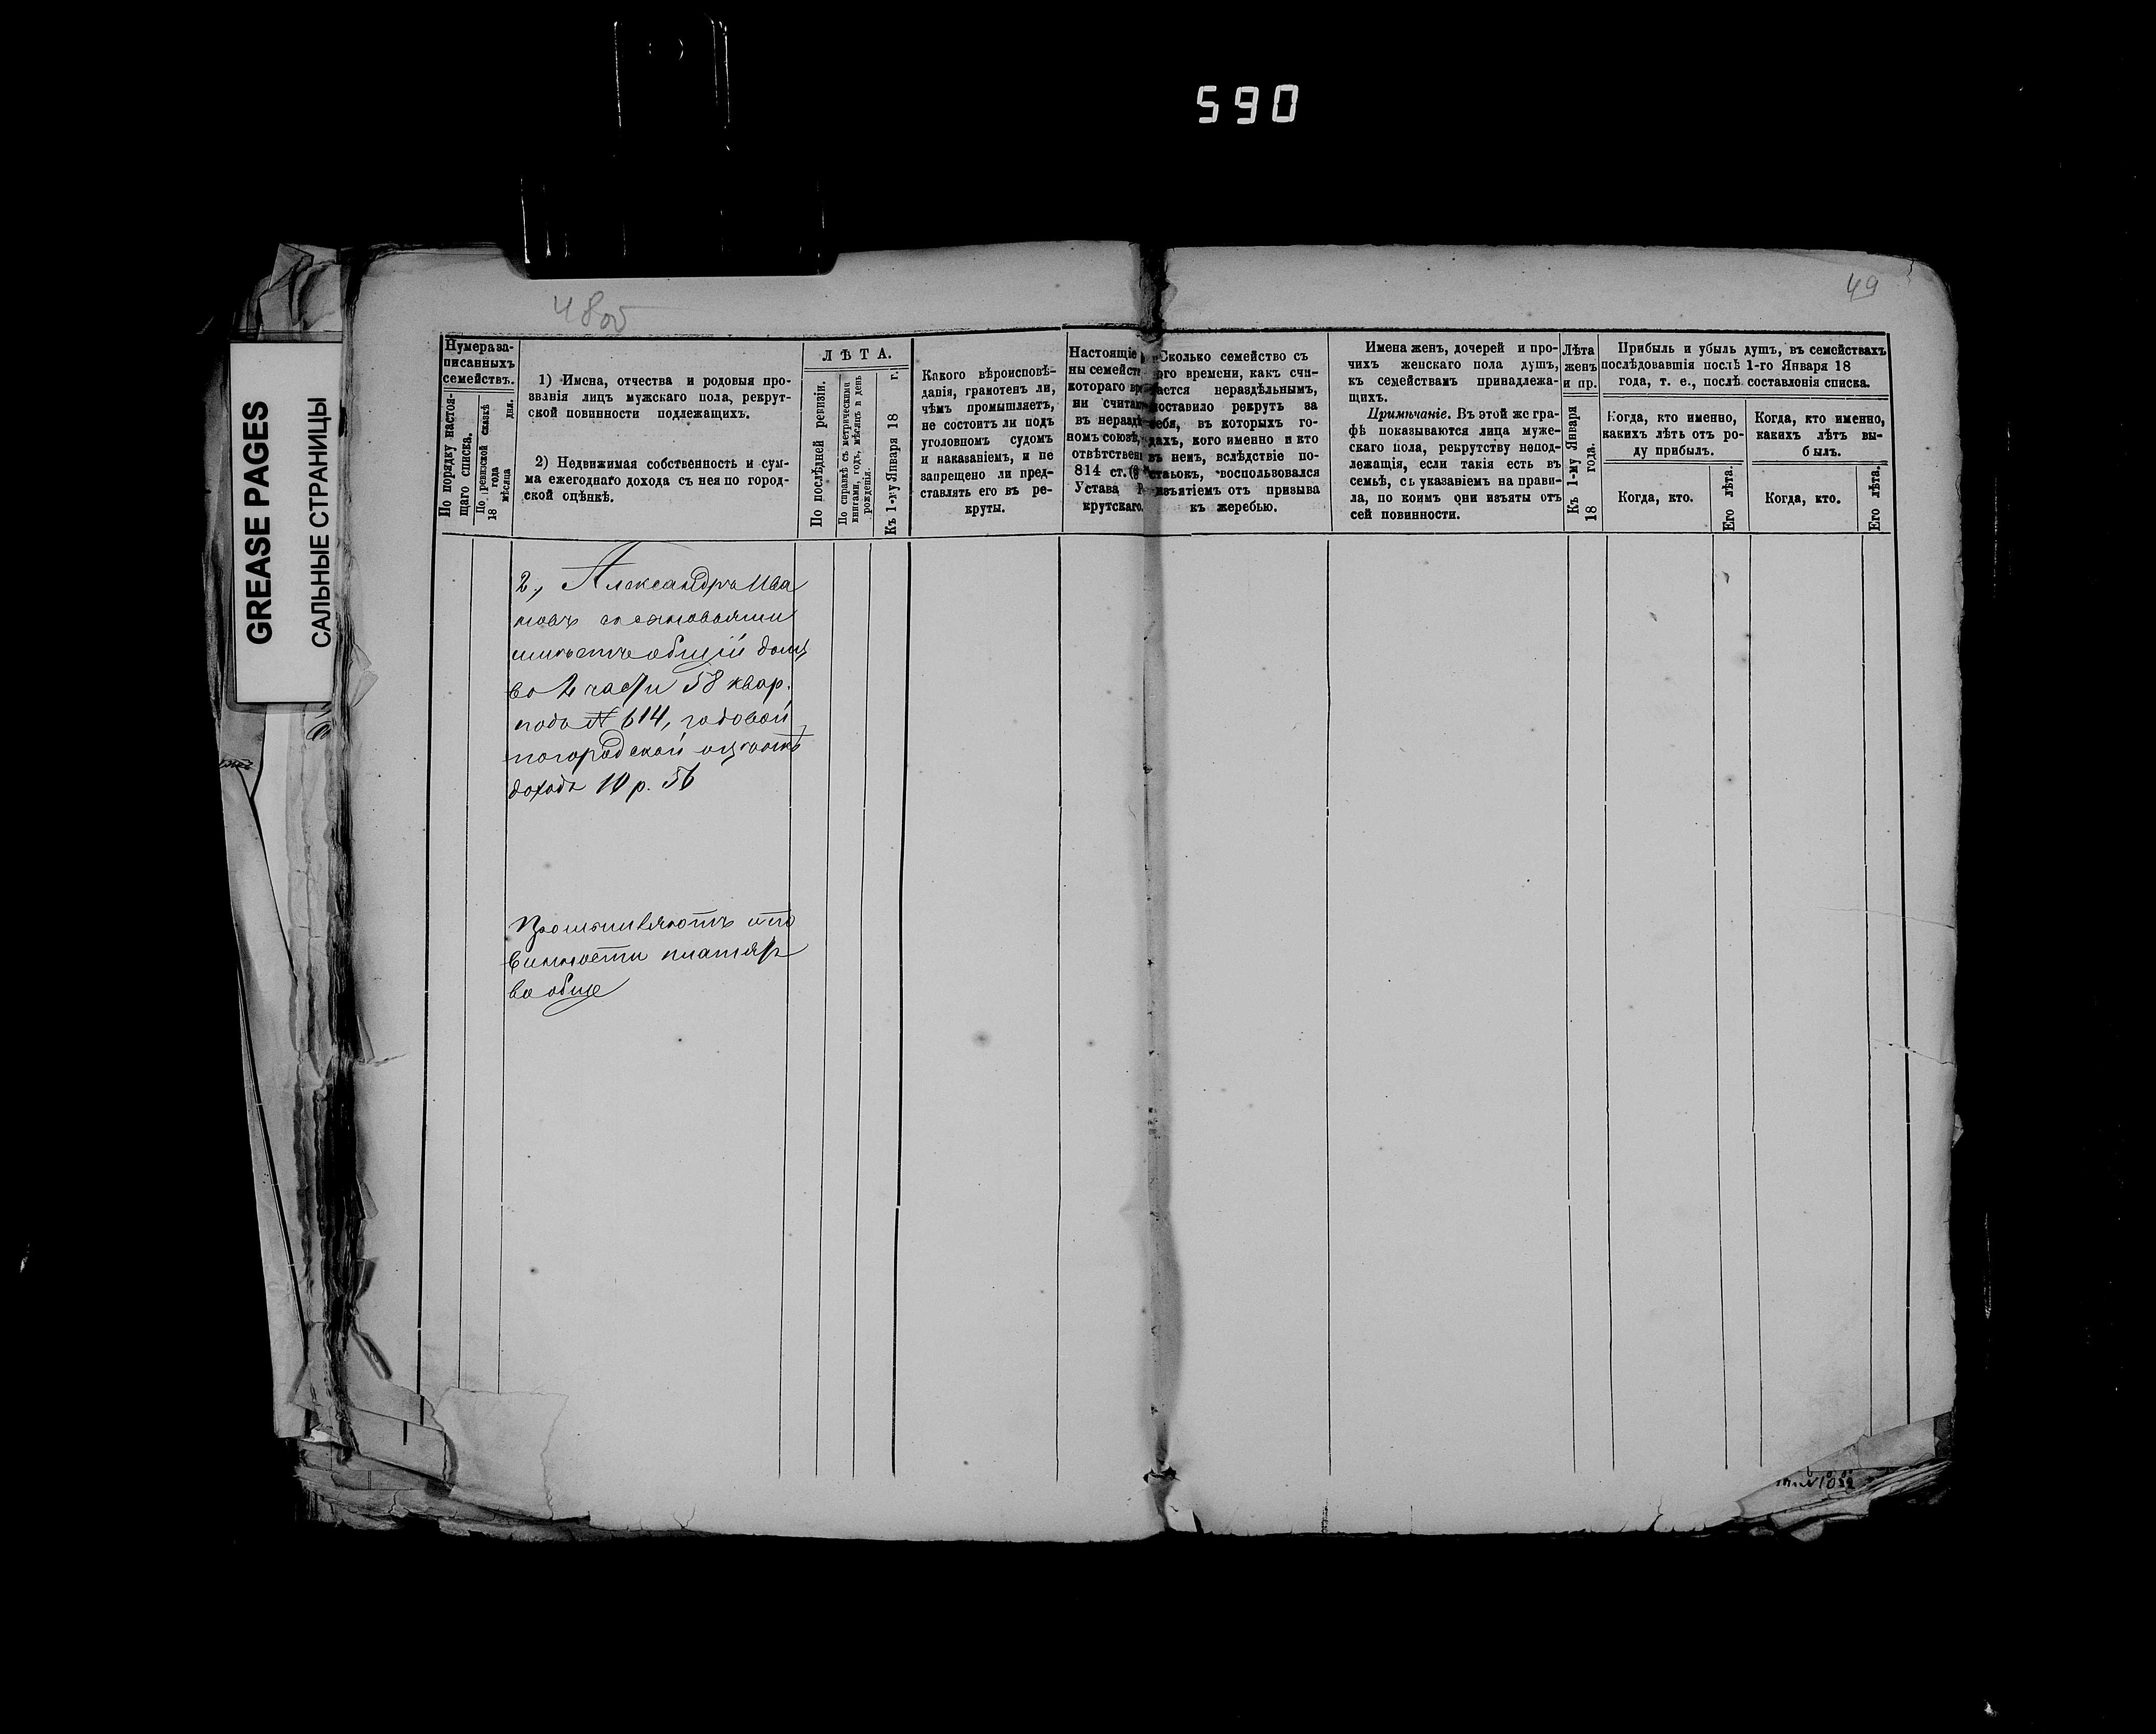 590
GREASE PAGES
САЛЬНЫЕ СТРАНИЦЫ
48об
49
Нумера за-
писанныхъ
семействъ.
По порядку настоя-
щаго списка.
По ревизской сказкѣ
18 года
мѣсяца дня.
1) Имена, отчества и родовыя про-
званія лицъ мужскаго пола, рекрут-
ской повинности подлежащихъ.
2) Недвижимая собственность и сум-
ма ежегоднаго дохода съ нея по город-
ской оцѣнкѣ.
ЛѢТА.
По послѣдней ревизіи.
По справкѣ съ метрическими
книгами, годъ, мѣсяцъ и день
рожденія.
Къ 1-му Января 18 г.
Какого вѣроисповѣ-
данія, грамотенъ ли,
чѣмъ промышляетъ,
не состоитъ ли подъ
уголовномъ судомъ
и наказаніемъ, и не
запрещено ли пред-
ставлять его въ ре-
круты.
Настоящіе
ны семейств
котораго вре
ни считаю
въ неразд
номъ союзѣ,
отвѣтствен
814 ст.
Устава Р
крутскаго.
Сколько семейство съ
того времени, какъ счи-
тается нераздѣльнымъ,
поставило рекрутъ за
себя, въ которыхъ го-
дахъ, кого именно и кто
въ немъ, вслѣдствіе по-
ставокъ, воспользовался
изъятіемъ отъ призыва
къ жеребью.
Имена женъ, дочерей и про-
чихъ женскаго пола душъ,
къ семействамъ принадлежа-
щихъ.
Примѣчаніе. Въ этой же гра-
фѣ показываются лица муже-
скаго пола, рекрутству непод-
лежащія, если такія есть въ
семьѣ, съ указаніемъ на прави-
ла, по коимъ они изъяты отъ
сей повинности.
Лѣта
женъ
и пр.
Къ 1-му Января
18 года.
Прибыль и убыль душъ, въ семействахъ
послѣдовавшія послѣ 1-го Января 18
года, т. е., послѣ составленія списка.
Когда, кто именно,
какихъ лѣтъ отъ ро-
ду прибылъ.
Когда, кто.
Его лѣта.
Когда, кто именно,
какихъ лѣтъ вы-
былъ.
Когда, кто.
Его лѣта.
2., Александръ Ива
новъ съ сыновьями
имѣютъ общій домъ
во 2 части 58 квар.
подъ № 614, годовой
погородской оцѣнкѣ
доходъ 10 р. 56
Промышляютъ и по
винности платятъ
вообще